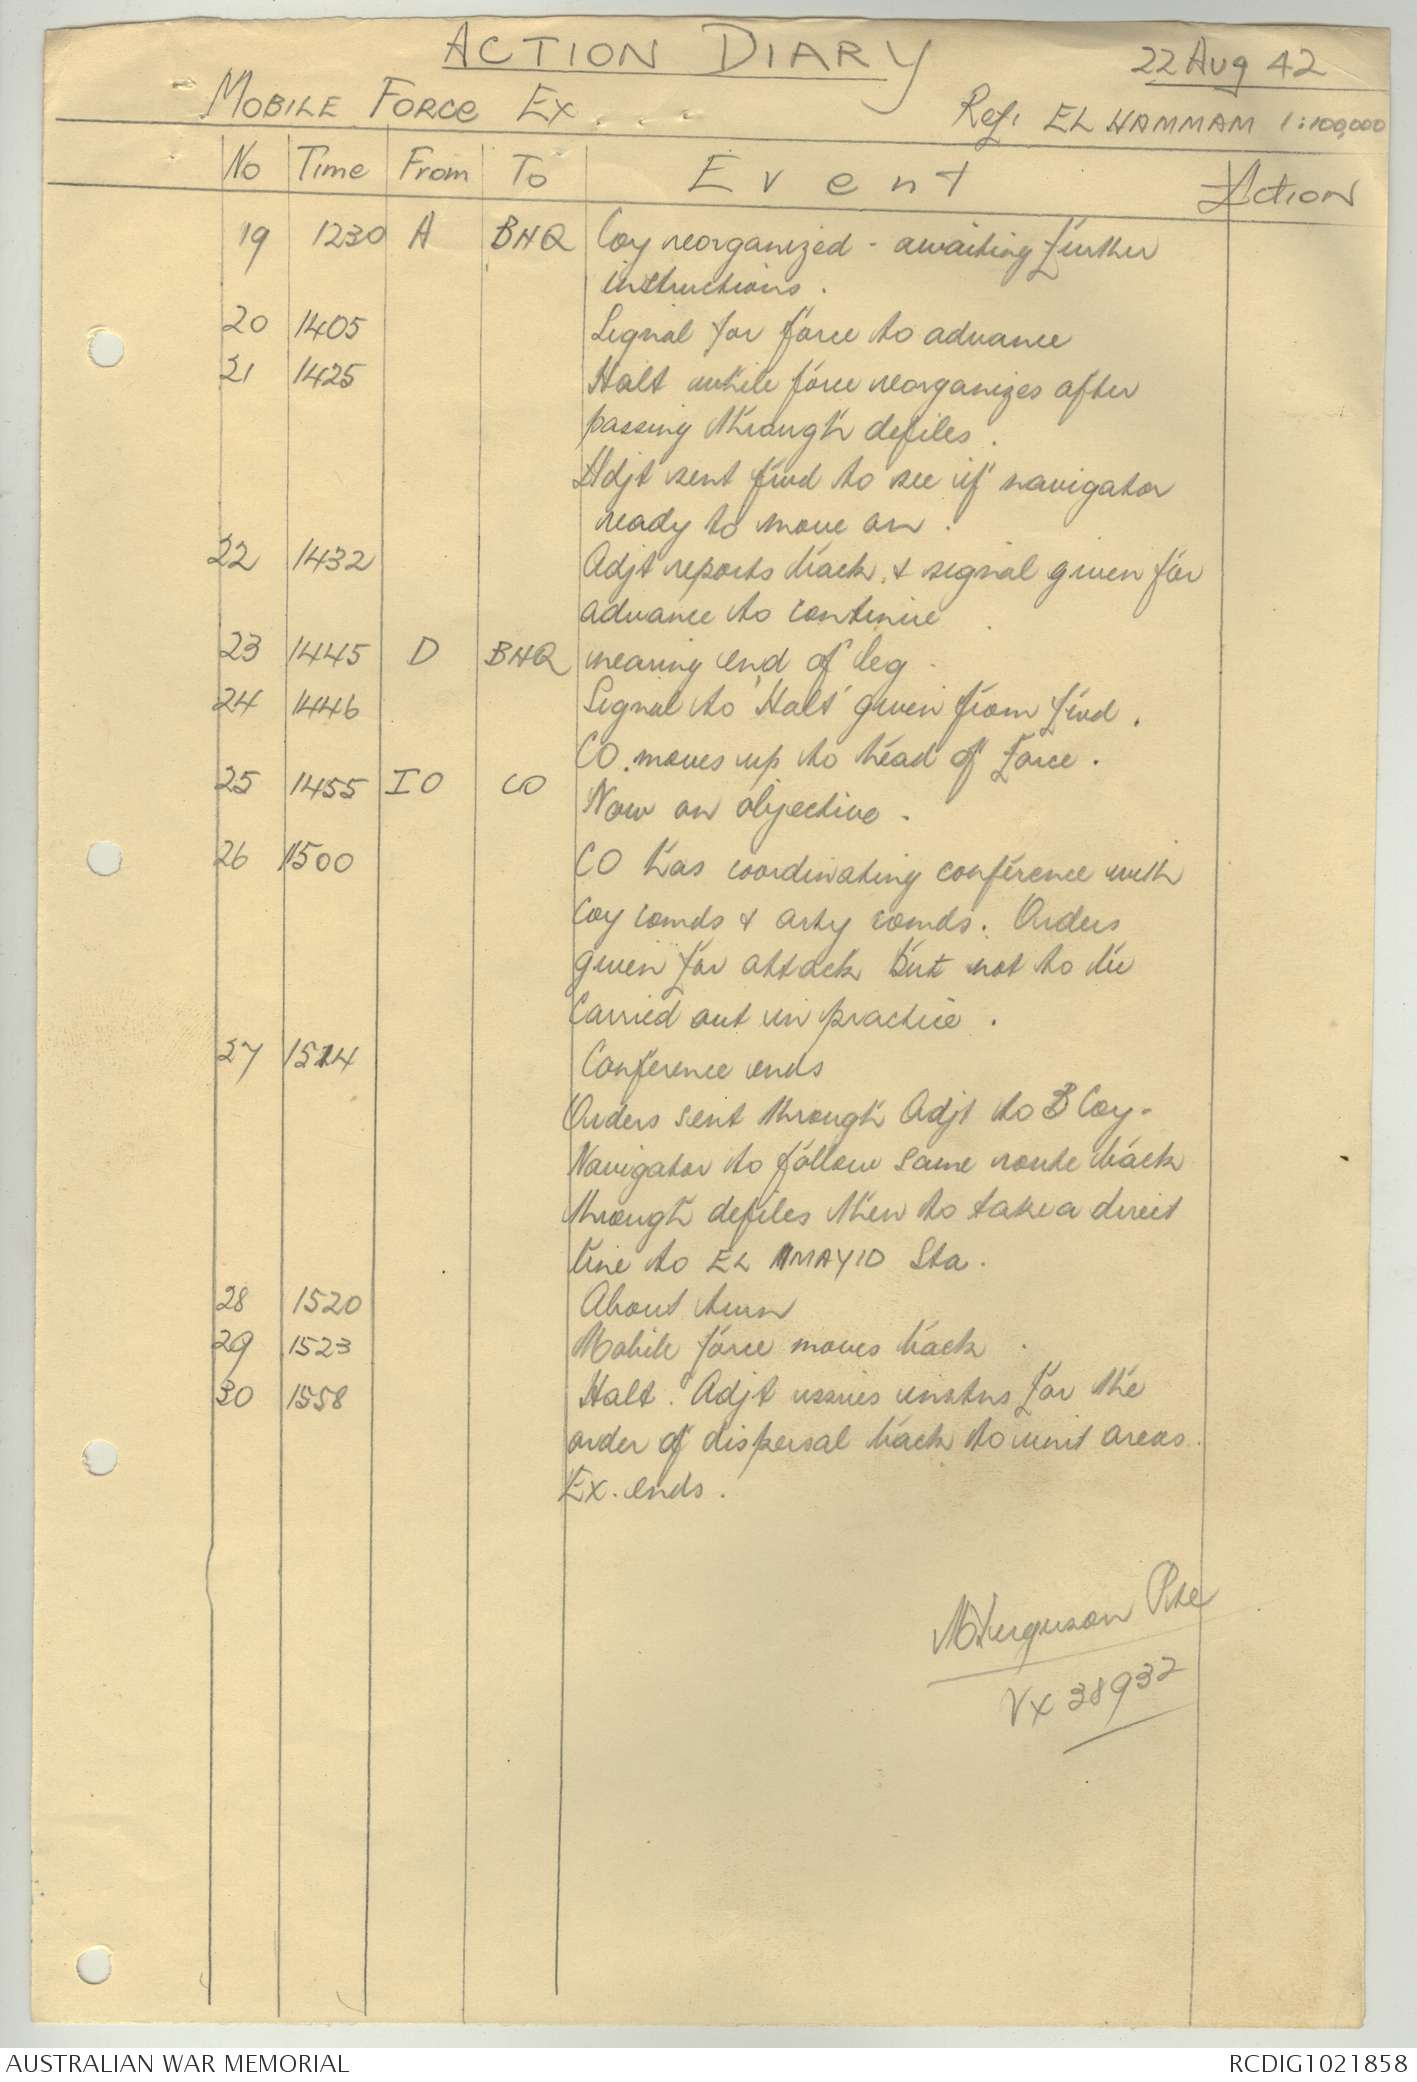 ACTION DIARY
22 Aug 42
MOBILE FORCE Ex. . .
Ref: EL HAMMAM 1:100,000
No Time From To Event Action
19 1230 A BHQ Coy reorganized - awaiting further
instructions.
20 1405 Signal for force to advance
21 1425 Halt while force reorganizes after
passing through defiles.
Adjt sent fwd to see if navigator
ready to move on.
22 1432 Adjt reports back, & signal given for
advance to continue
23 1445 D BHQ nearing end of leg.
24 1446 Signal to 'Halt' given from fwd.
CO. moves up to head of Force.
25 1455 IO CO Now on objective.
26 1500 CO has coordinating conference with
Coy comds & arty comds. Orders
given for attack but not to be
carried out in practice.
27 1514 Conference ends
Orders sent through Adjt to B Coy.
Navigator to follow same route back
through defiles then to take a direct
line to EL MAYID Sta.
28 1520 About turn
29 1523 Mobile force moves back.
30 1558 Halt. Adjt issues instns for the
order of dispersal back to unit areas.
Ex. ends.
Ferguson Pte
VX 38932
AUSTRALIAN WAR MEMORIAL
RCDIG1021858